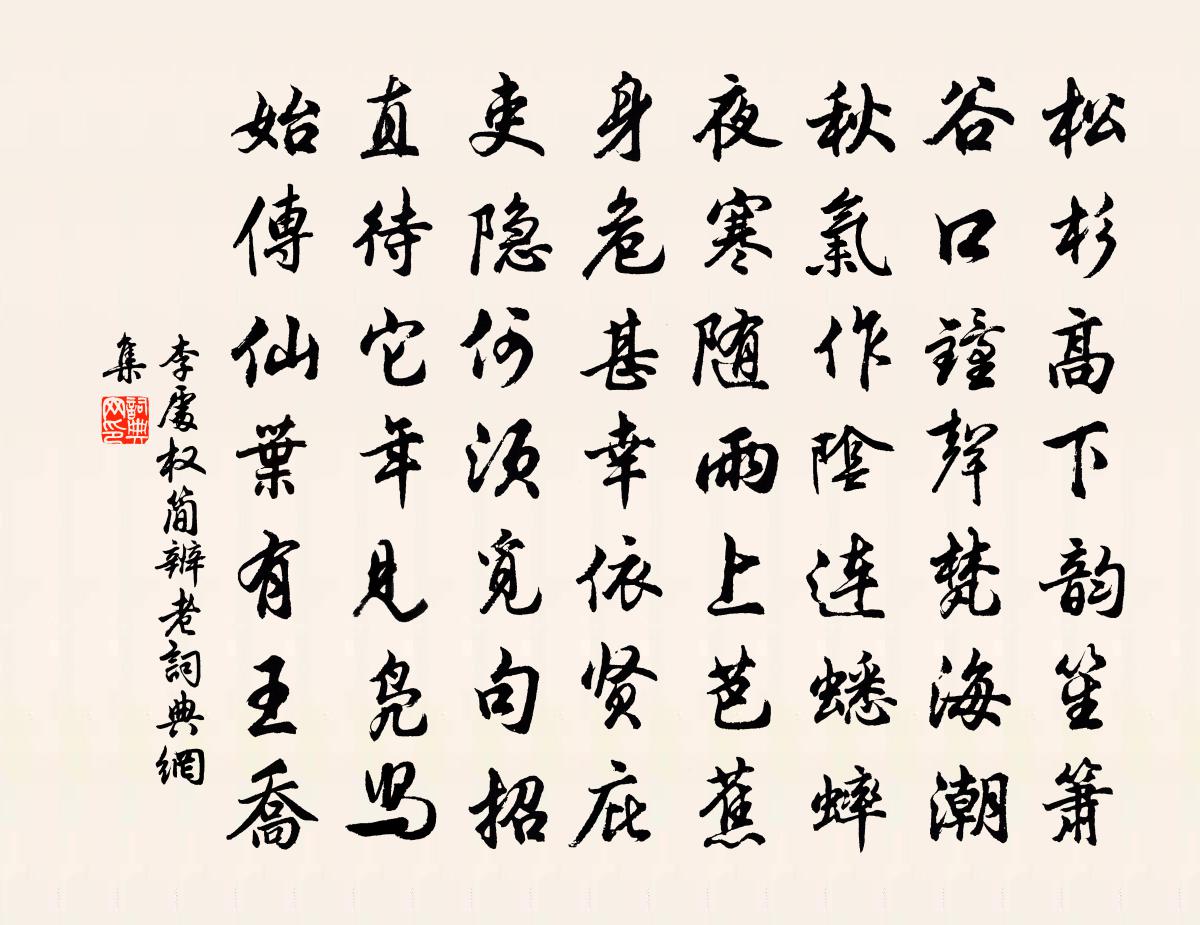 松杉高下韵笙箫
谷口鐘聲梵海潮
秋氣作陰连蟋蟀
夜寒随雨上芭蕉
身危甚幸依贤庇
吏隐何须觅句招
直待它年見凫舄
始傳仙葉有王喬
李處权简辨老詞典網
集
詞典网印